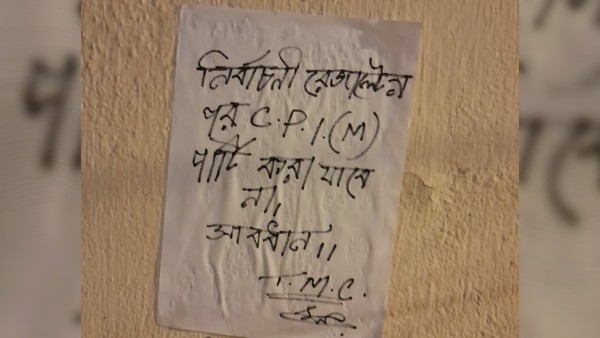 নির্বাচনী রেজাল্টের
পর C.P.I.(M)
পার্টি করা যাবে
না।
সাবধান।।
T.M.C.